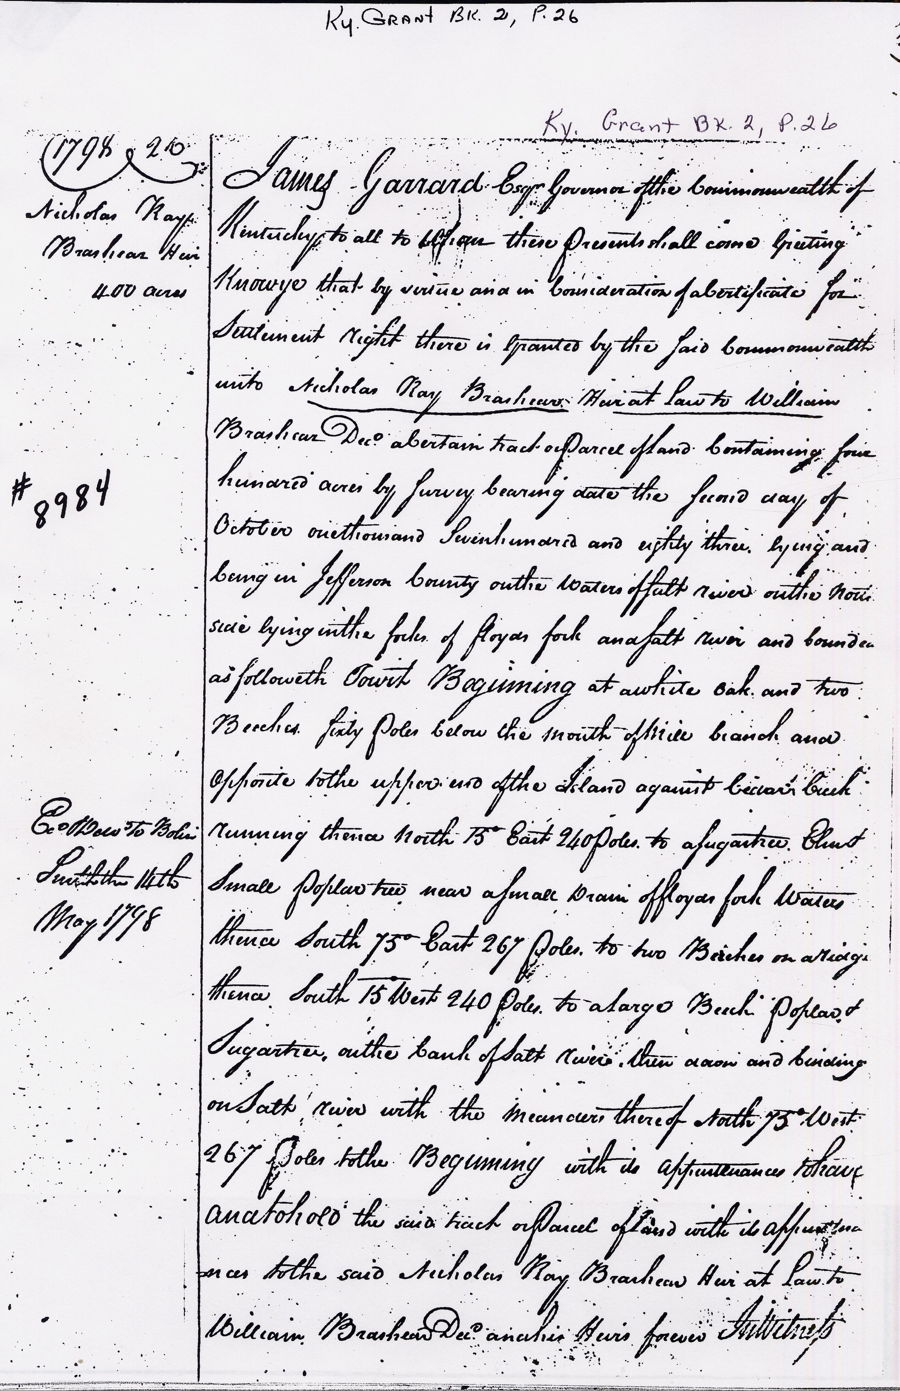 Ky. Grant Bk. 2, P. 26
Ky. Grant Bk. 2, P. 26
1798 & 26
Nicholas Ray
Brashear Heir
400 acres
#
8984
Exd Deld To
Smith the 14th
May 1798
James Garrard Esqr Governor of the Commonwealth of
Kentucky to all to whom these Presents shall come Greeting
Know ye that by virtue and in Consideration of a Certificate for
Settlement right there is granted by the said Commonwealth
unto Nicholas Ray Brashear Heir at Law to William
Brashear Decd a Certain tract or Parcel of Land Containing four
hundred acres by Survey bearing date the second day of
October one thousand Seven hundred and eighty three lying and
being in Jefferson County on the Waters of salt river on the North
side lying in the forks of floyds fork and salt river and bounded
as followeth Towit Beginning at a white oak and two
Beeches sixty Poles below the mouth of Mill branch and
opposite to the upper end of the Island against Creek
running thence North 15° East 240 Poles to a sugartree Elm &
Small Poplar tree near a small Drain of floyds fork Waters
thence South 75° East 267 Poles to two Beeches on a Ridge
thence South 15° West 240 Poles to a large Beech Poplar &
Sugartree on the bank of Salt river then down and binding
on Salt river with the meanders thereof North 75° West
267 Poles to the Beginning with its appurtenances to have
and to hold the said track or Parcel of Land with its appurtena
nces to the said Nicholas Ray Brashear Heir at Law to
William Brashear Decd and his Heirs forever In Witness